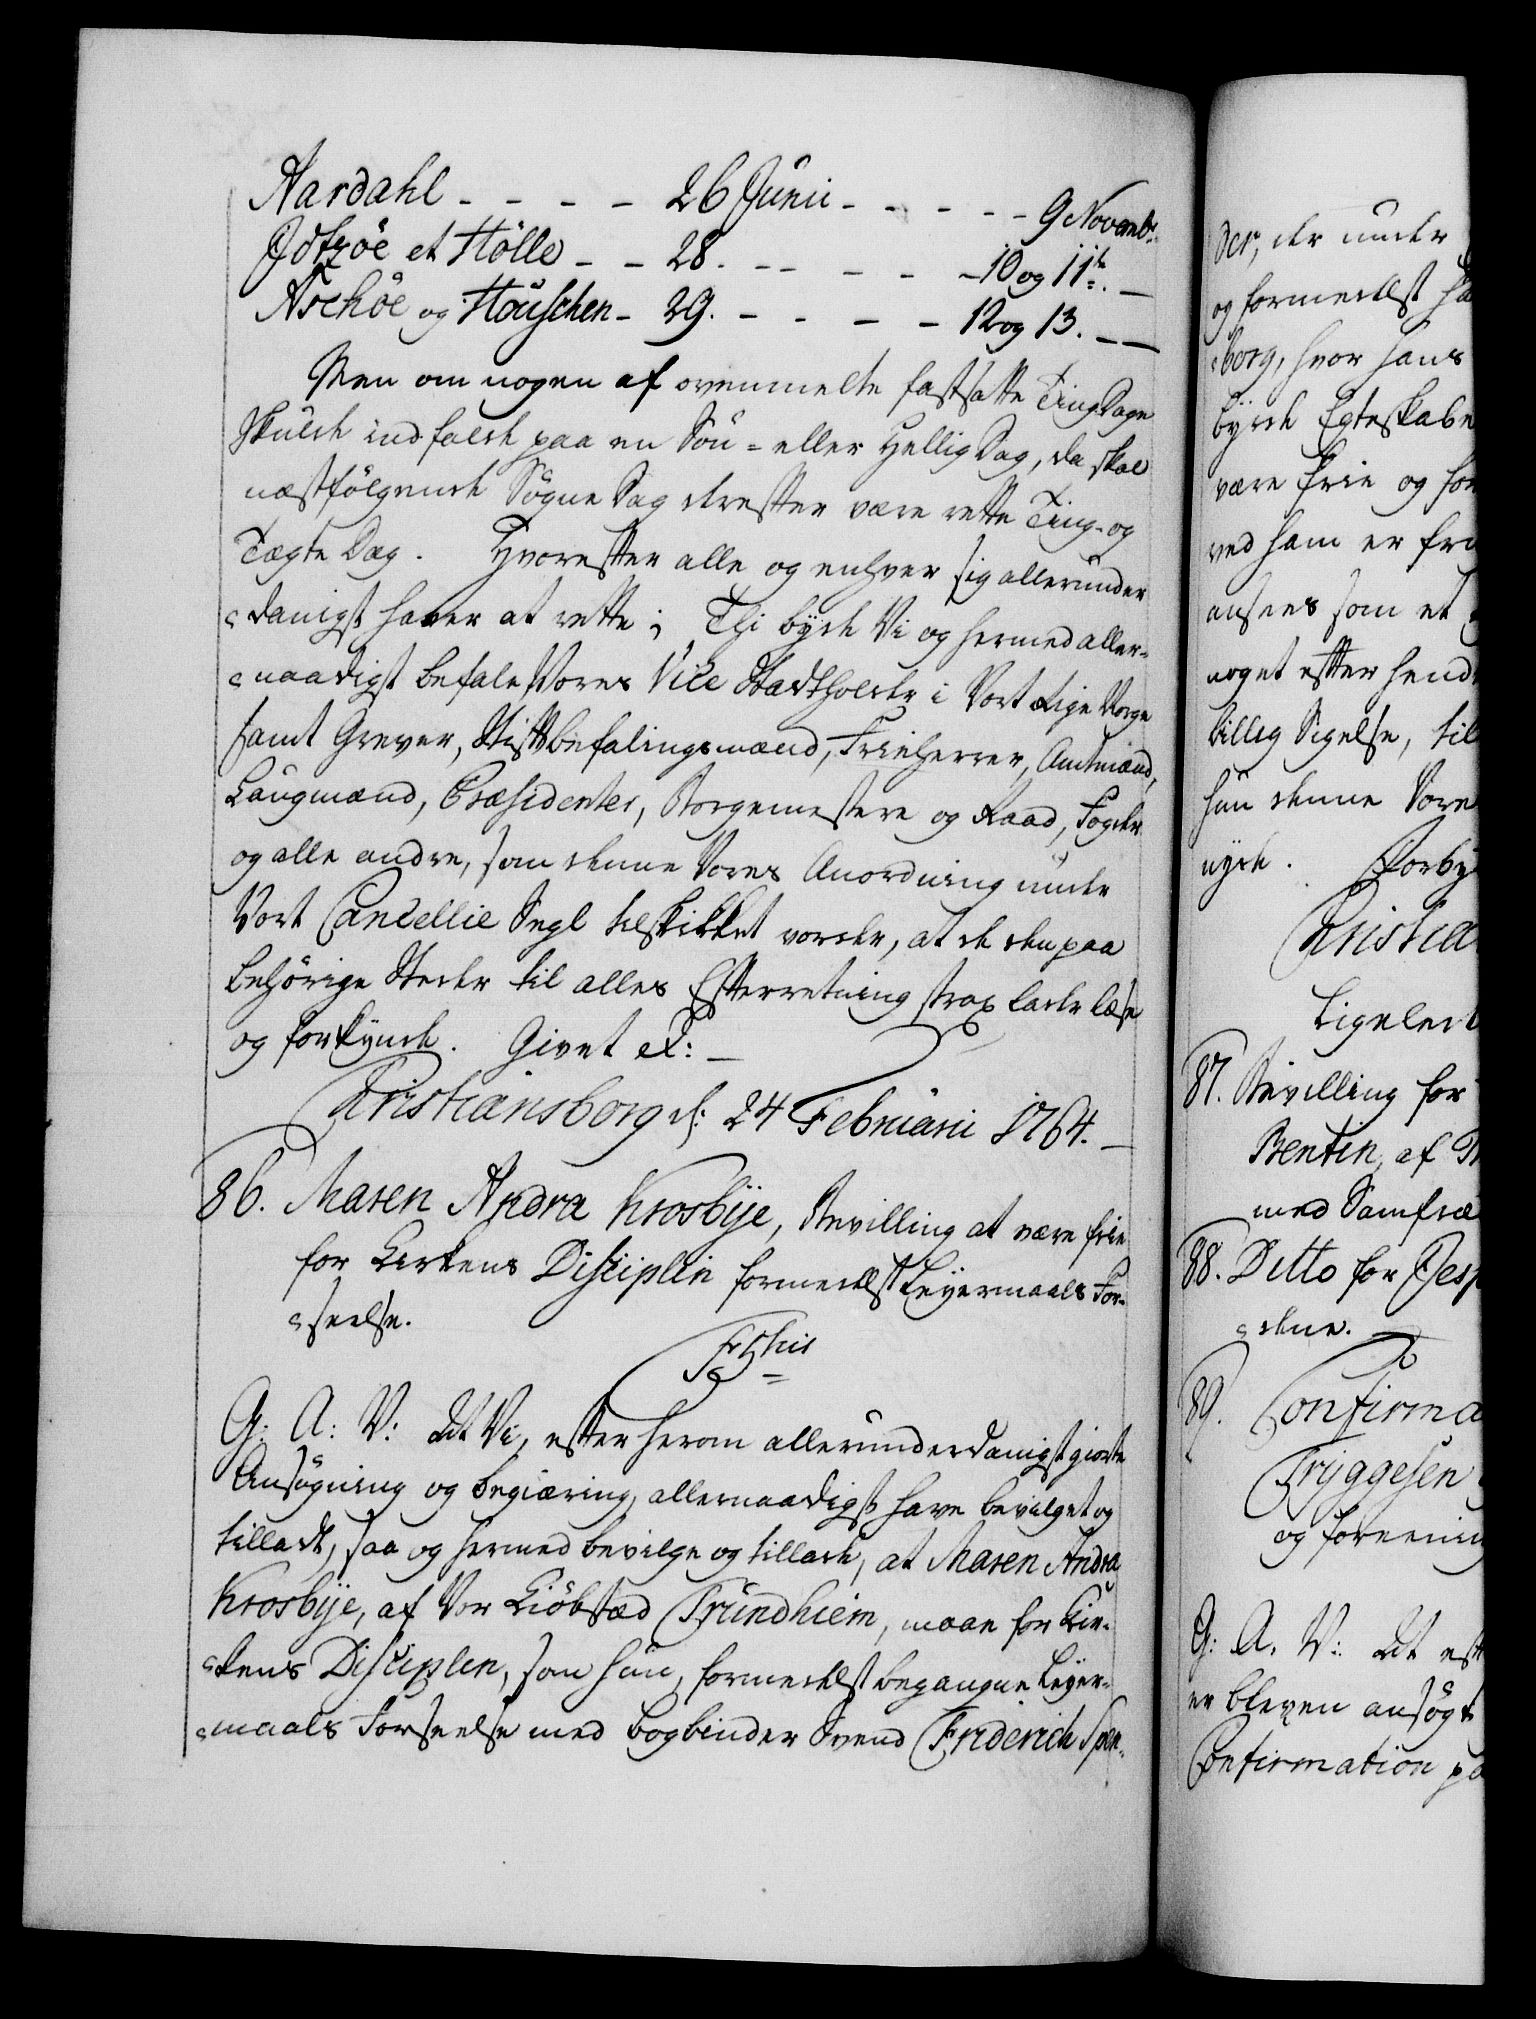 Aardahl - - - - 26 Junii - - - - - 9 Novembr:
Idtzöe et Hölle - - 28. - - - - - 10 og 11te. -
Aschöe og Houschen - 29. - - - - 12 og 13. - -
Men om nogen af ovenmelte fastsatte TingDage
skulde indfalde paa en Søn- eller HelligDag, da skal
næstfølgende SögneDag derefter være rette Ting- og
TægteDag. Hvorefter alle og enhver sig allerunder
danigst haver at rette; Thi byde Vi og hermed aller-
naadigst befale Vores Vice Stadtholder i Vort Rige Norge
samt Grever, Stiftbefalingsmænd, Friherrer, Amtmænd,
Laugmænd, Præsidenter, Borgemestere og Raad, Fogder
og alle andre, som denne Vores Anordning under
Vort Cancellie Segl tilskikket vorder, at de den paa
behörige Steder til alles Efterretning strax lader læse
og forkynde. Givet &: -
Christiansborg d: 24 Februarii 1764. -
86. Maren Andra Krosbye, Bevilling at være frie
for Kirkens Disciplin formedelst Leyermaals For-
seelse.
G: A: V: At Vi, efter herom allerunderdanigst giorte
Ansögning og begiæring, allernaadigst have bevilget og
tilladt, saa og hermed bevilge og tillade, at Maren Andra
Krosbye, af Vor Kiöbsted Trundhiem, maae for Kir-
kens Disciplen, som hun, formedelst begangne Leyer-
maals Forseelse med bogbinder Svend Friderich Spen-
der, der under
og formedelst
borg, hvor hans
byde Egteskabe
være frie og for
ved ham er
ansees som et
noget efter hend
billig Sigelse, til
hun denne Vore
nyde. Forby
Christia
Ligeled
87. Bevilling for
Bentin, af
med Samfræ
88. Ditto for Jesp
dene.
89. Confirma
Tryggesen
og foreening
G: A. V: At eft
er bleven ansögt
Confirmation pa